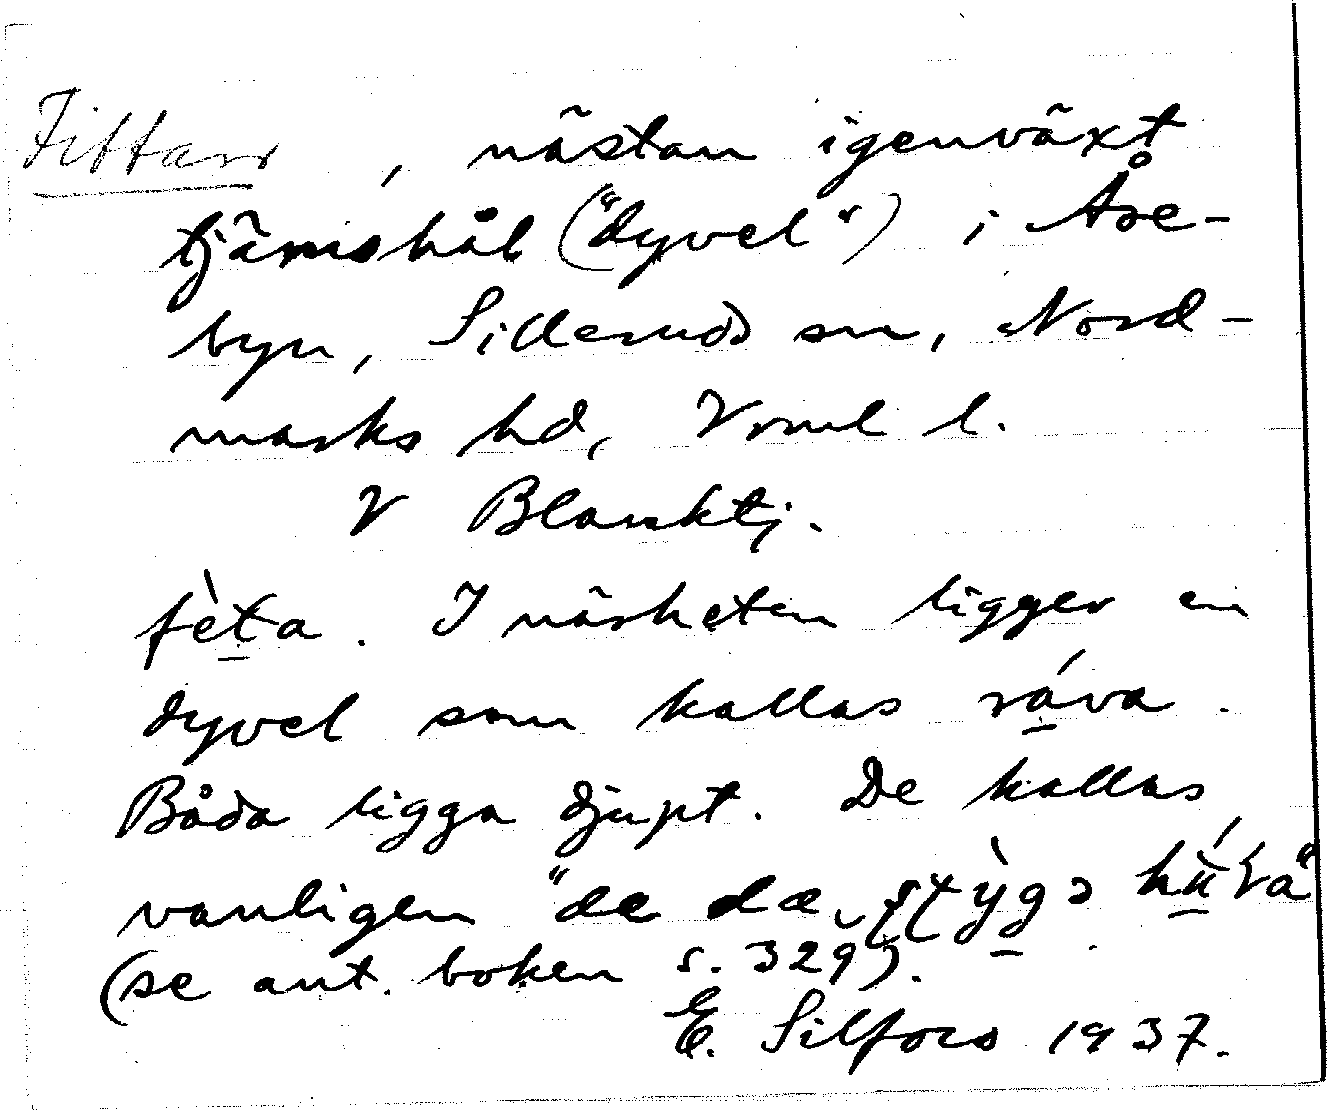 Fittan, nästan igenväxt
tjärnshål ("dyvel") i Åse-
byn, Silleruds sn, Nord-
marks hd, Värml l.
V Blanktj.
fèta. I närheten ligger en
dyvel som kallas ráva.
Båda ligga djupt. De kallas
vanligen "de
(se ant. boken s. 329).
E. Silfors 1937.